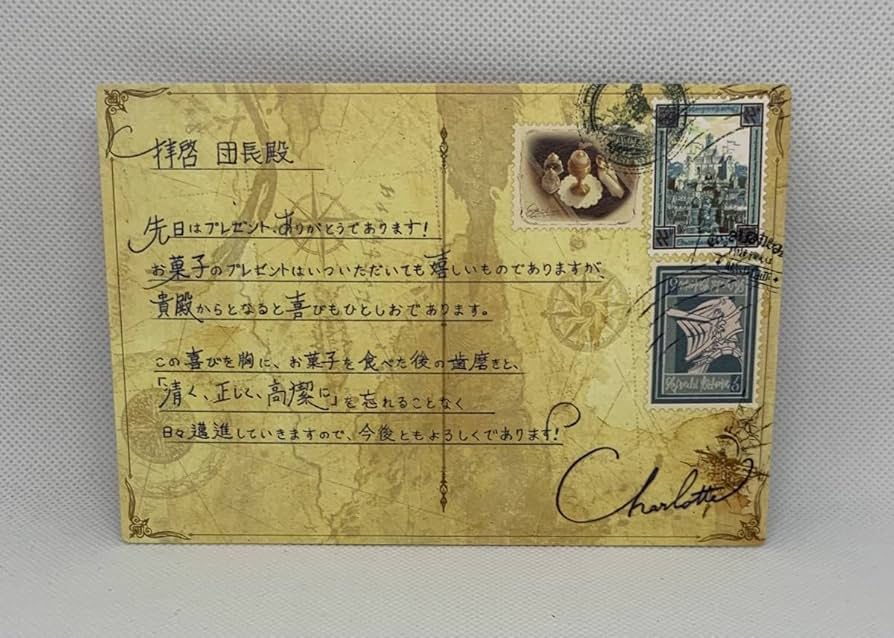 拝啓 団長殿
先日はプレゼント、ありがとうであります!
お菓子のプレゼントはいついただいても嬉しいものでありますが、
貴殿からとなると喜びもひとしおであります。
この喜びを胸に、お菓子を食べた後の歯磨きと、
「清く、正しく、高潔に」を忘れることなく
日々邁進していきますので、今後ともよろしくであります!
Charlotte